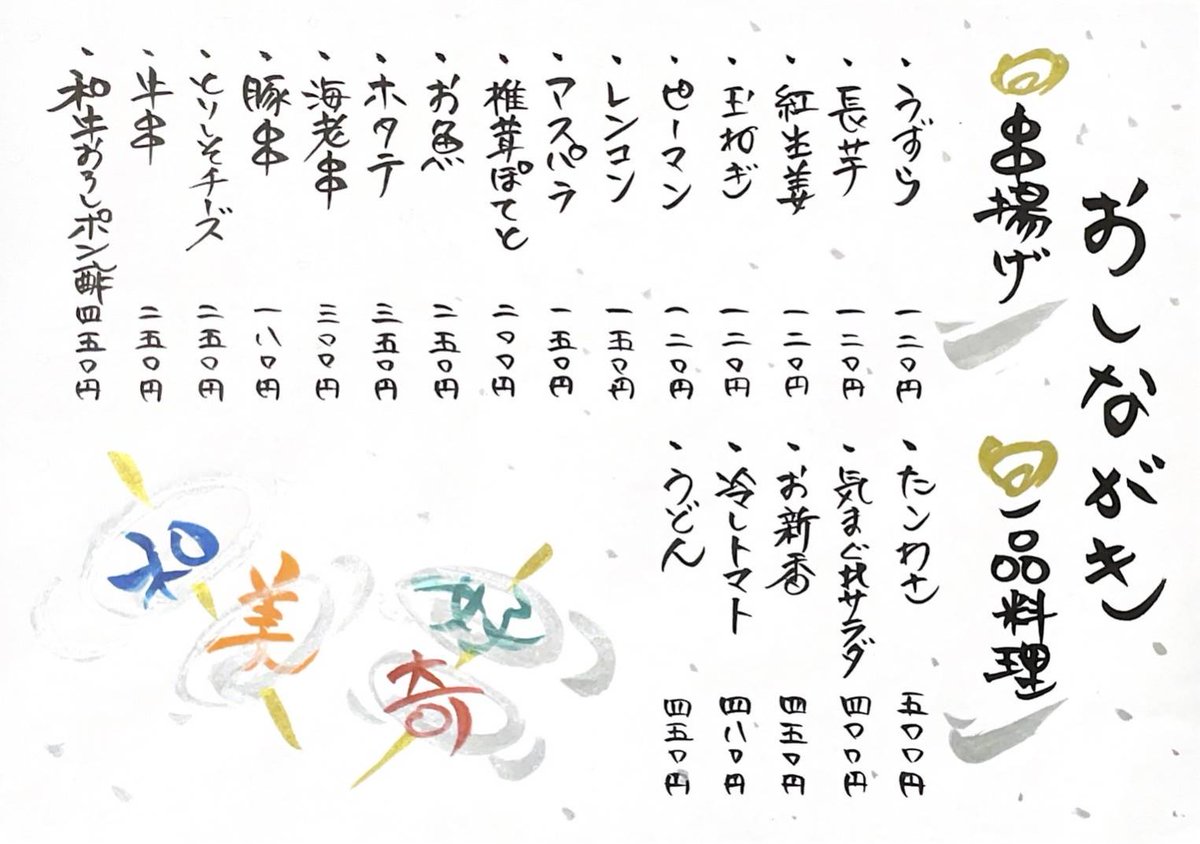 おしながき
串揚げ
・うずら 一二〇円
・長芋 一二〇円
・紅生姜 一二〇円
・玉ねぎ 一二〇円
・ピーマン 一二〇円
・レンコン 一五〇円
・アスパラ 一五〇円
・椎茸ぽてと 二〇〇円
・お魚 二五〇円
・ホタテ 三五〇円
・海老串 三〇〇円
・豚串 一八〇円
・とりしそチーズ 二五〇円
・牛串 二五〇円
・和牛おろしポン酢 四五〇円
一品料理
・たこわさ 五〇〇円
・気まぐれサラダ 四〇〇円
・お新香 四五〇円
・冷しトマト 四八〇円
・うどん 四五〇円
和美
奇